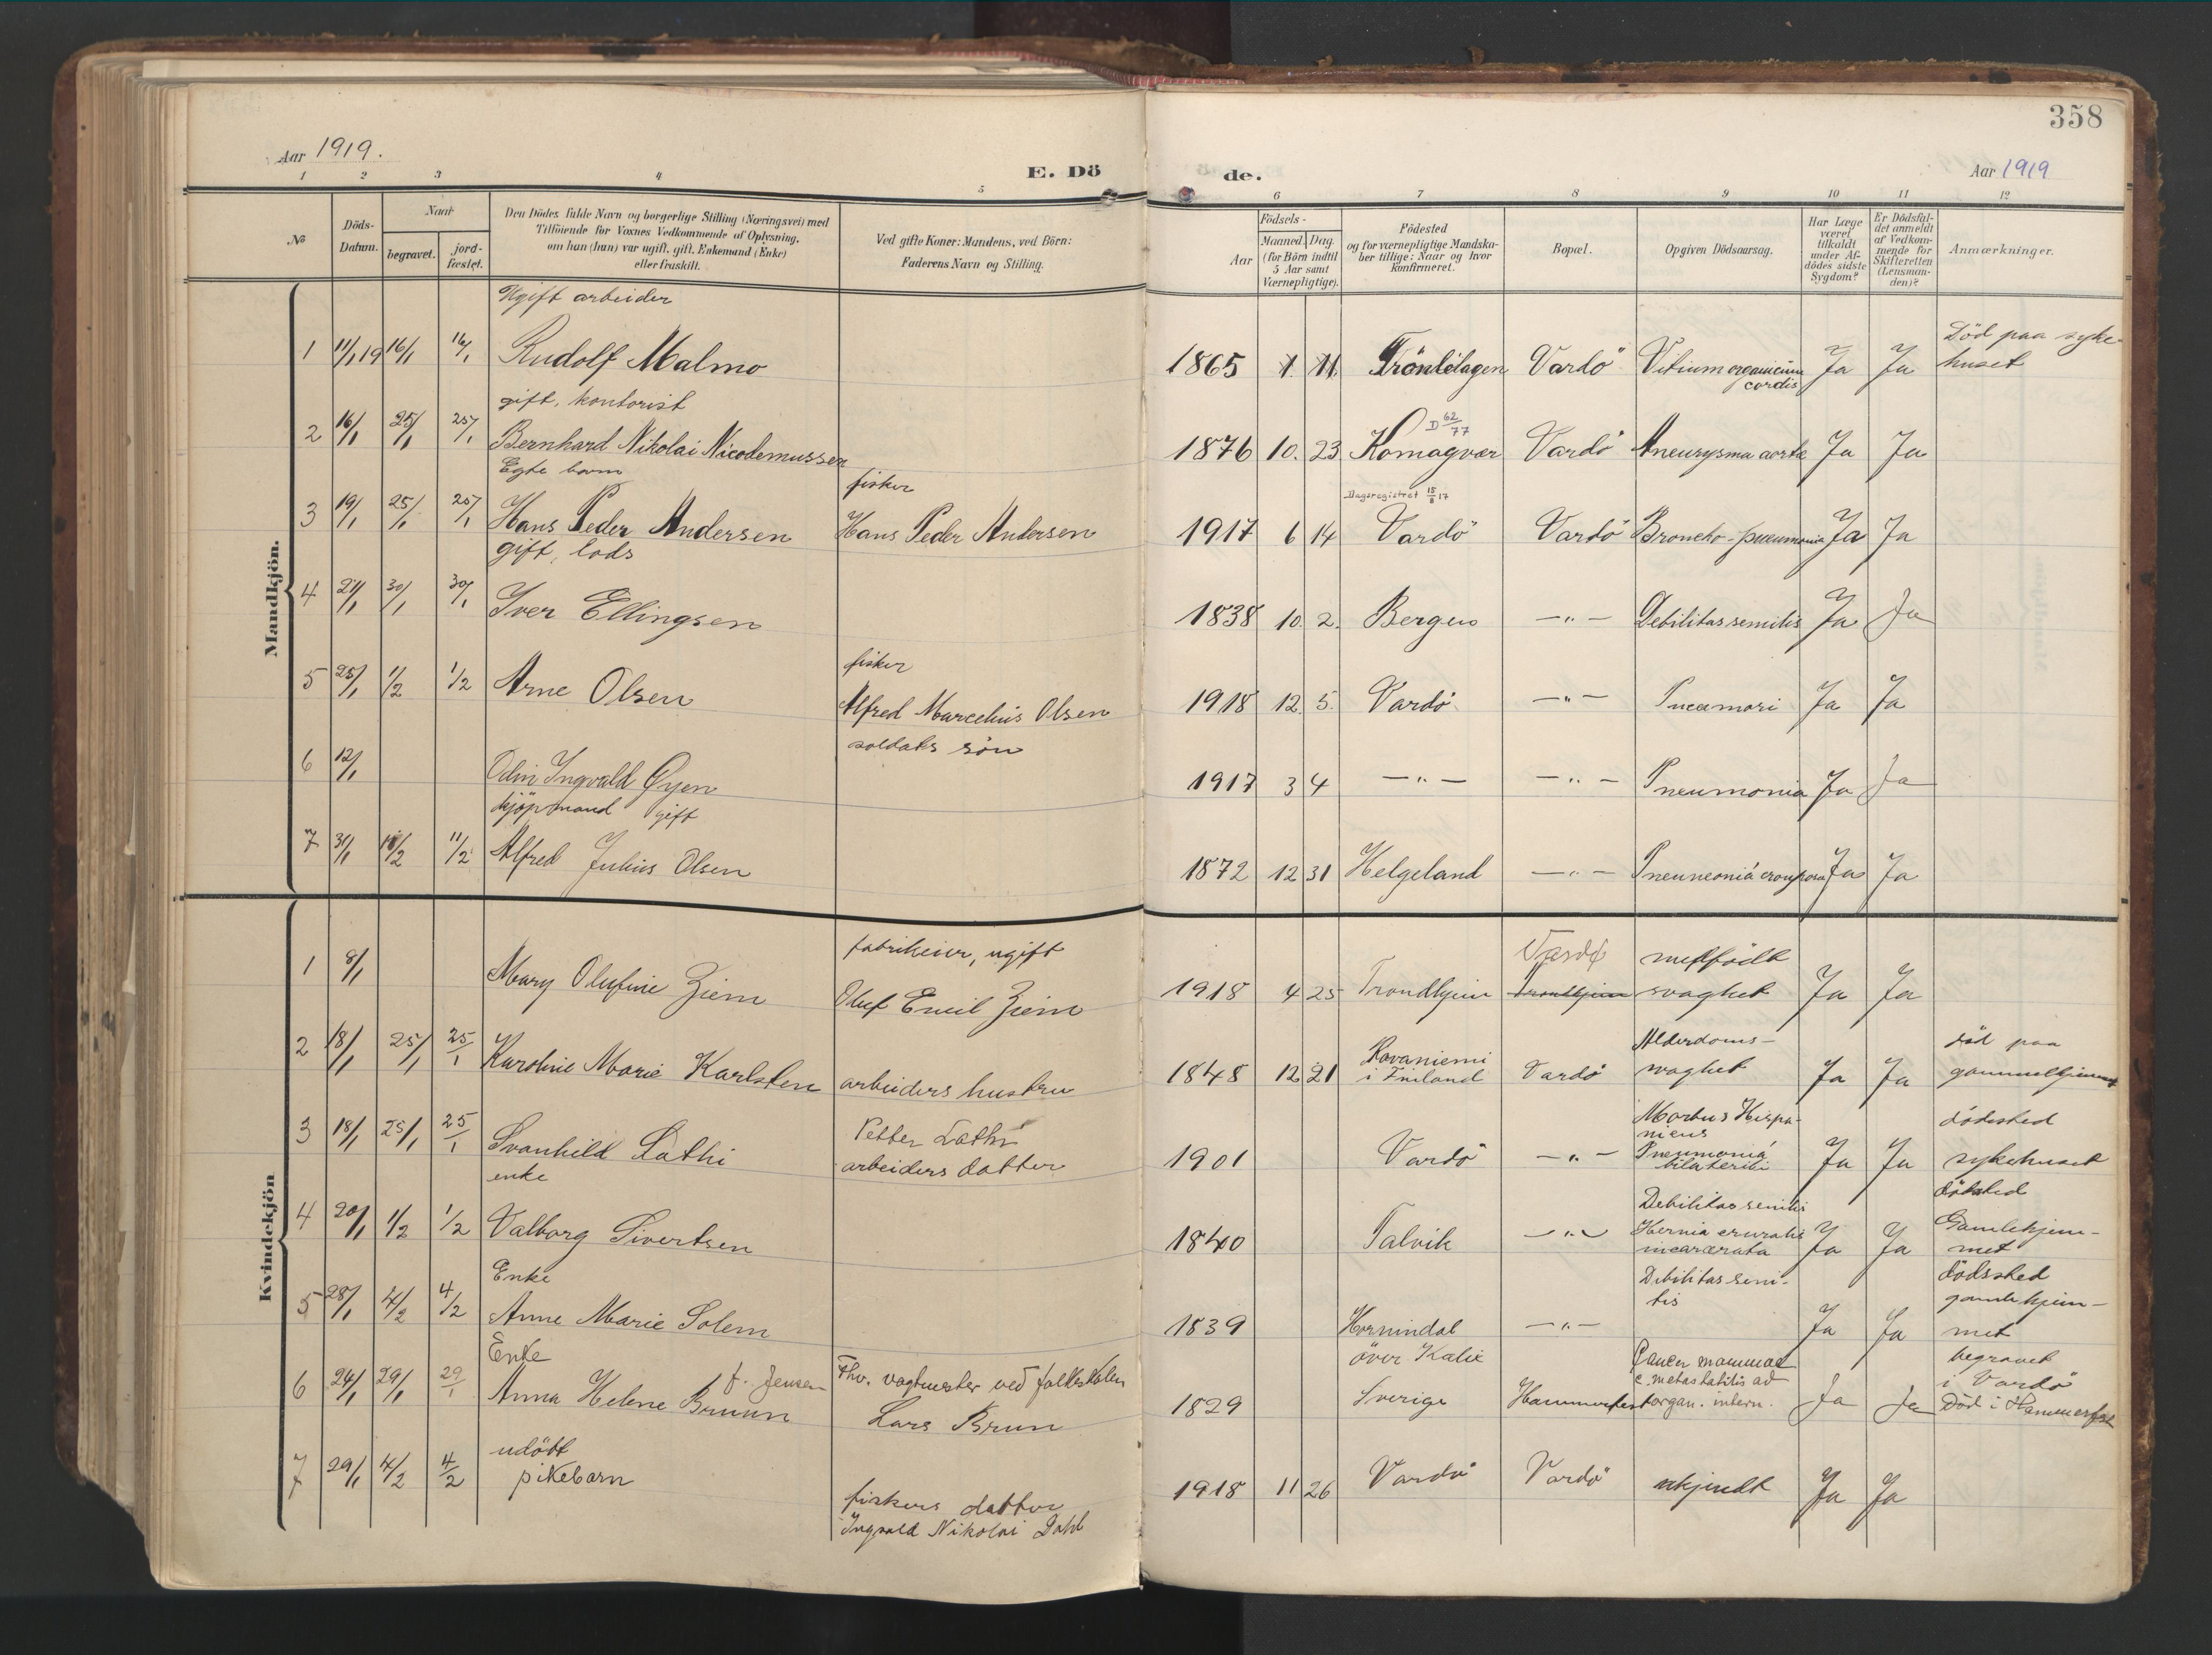 358
Aar 1919.
E. Dö
de.
Aar 1919
1 2 3 4 5
6 7 8 9 10 11 12
No
Döds-
Datum.
Naar
begravet.
jord-
fæstet.
Den Dödes fulde Navn og borgerlige Stilling (Næringsvei) med
Tilföiende for Voxnes Vedkommende af Oplysning,
om han (hun) var ugift, gift, Enkemand (Enke)
eller fraskilt.
Ved gifte Koner: Mandens, ved Börn:
Faderens Navn og Stilling.
Födsels-
Aar
Maaned. Dag.
(for Börn indtil
5 Aar samt
Værnepligtige).
Födested
og for værnepligtige Mandska-
ber tillige: Naar og hvor
konfirmeret.
Bopæl.
Opgiven Dödsaarsag.
Har Læge
været
tilkaldt
under Af-
dödes sidste
Sygdom?
Er Dödsfal-
det anmeldt
af Vedkom-
mende for
Skifteretten
(Lensman-
den)?
Anmærkninger.
Mandkjön.
Ugift arbeider
1 11/1 19 16/1 16/1 Rudolf Malmo
1865 1. 11. Tröndelagen Vardö Vitium organicum cordis Ja Ja Död paa syke-
huset
gift, kontorist
2 16/1 25/1 25/1 Bernhard Nikolai Nicodemussen
D 62/77
1876 10. 23 Komagvær Vardö Aneurysma aortæ Ja Ja
Egte barn
fisker
3 19/1 25/1 25/1 Hans Peder Andersen Hans Peder Andersen
Dagsregistret 15/8 17
1917 6 14 Vardö Vardö Broncho-pneumonia Ja Ja
gift, lods
4 21/1 30/1 30/1 Iver Ellingsen
1838 10. 2. Bergen -"- Debilitas senilis Ja Ja
fisker
5 25/1 1/2 1/2 Arne Olsen Alfred Marcelius Olsen
1918 12. 5. Vardö -"- Ja Ja
soldats sön
6 12/1 Odin Ingvald Øyen
1917 3 4 -"- -"- Pneumonia Ja Ja
kjöpmand gift
7 31/1 11/2 11/2 Alfred Julius Olsen
1872 12 31 Helgeland -"- Pneumonia crouposa Ja Ja
Kvindekjön
fabrikeier, ugift
1 8/1 Mary Olufine Ziem Oluf Emil Ziem
Vardø
1918 4 25 Trondhjem Trondhjem medfödt
svaghet Ja Ja
2 18/1 25/1 25/1 Karoline Marie Karlsten arbeiders hustru
1848 12 21 Rovaniemi
i Finland Vardö Alderdoms-
svaghet Ja Ja död paa
gammelhjemmet
3 18/1 25/1 25/1 Svanhild Lathi Petter Lathi
arbeiders datter
1901 Vardö -"- Morbus Hispa-
nicus
Pneumonia
bilateralis Ja Ja dödssted
sykehuset
enke
4 20/1 1/2 1/2 Valborg Sivertsen
1840 Talvik -"- Debilitas senilis
Hernia cruralis
incarcerata Ja Ja dödssted
Gamlehjem-
met
Enke
5 28/1 4/2 4/2 Anne Marie Solem
1839 Hornindal -"- Debilitas seni-
lis Ja Ja dödssted
gamlehjem-
met
Enke
6 24/1 29/1 29/1 Anna Helene Bruun f. Jensen Fhv. vagtmester ved
Lars Brun
1829 över Kalix
Sverige Hammerfest Cancer mammae
c. metastatitis ad
organ. intern. Ja Ja begravet
i Vardö
Död i Hammerfest
7 29/1 4/2 4/2 udöbt
pikebarn
fiskers datter
Ingvald Nikolai Dahl
1918 11 26 Vardö Vardö ukjendt Ja Ja